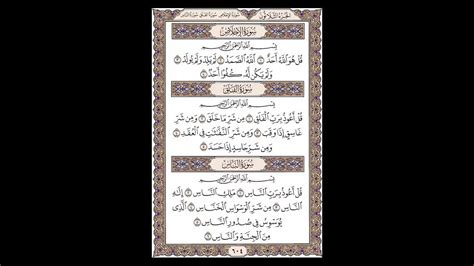 سُورَةُ الإِخْلَاصِ
بِسْمِ اللَّهِ الرَّحْمَٰنِ الرَّحِيمِ
قُلْ هُوَ اللَّهُ أَحَدٌ ١ اللَّهُ الصَّمَدُ ٢ لَمْ يَلِدْ وَلَمْ يُولَدْ ٣
وَلَمْ يَكُن لَّهُ كُفُوًا أَحَدٌ ٤
سُورَةُ الفَلَقِ
بِسْمِ اللَّهِ الرَّحْمَٰنِ الرَّحِيمِ
قُلْ أَعُوذُ بِرَبِّ الْفَلَقِ ١ مِن شَرِّ مَا خَلَقَ ٢ وَمِن شَرِّ
غَاسِقٍ إِذَا وَقَبَ ٣ وَمِن شَرِّ النَّفَّاثَاتِ فِي الْعُقَدِ ٤
وَمِن شَرِّ حَاسِدٍ إِذَا حَسَدَ ٥
سُورَةُ النَّاسِ
بِسْمِ اللَّهِ الرَّحْمَٰنِ الرَّحِيمِ
قُلْ أَعُوذُ بِرَبِّ النَّاسِ ١ مَلِكِ النَّاسِ ٢ إِلَٰهِ
النَّاسِ ٣ مِن شَرِّ الْوَسْوَاسِ الْخَنَّاسِ ٤ الَّذِي
يُوَسْوِسُ فِي صُدُورِ النَّاسِ ٥
مِنَ الْجِنَّةِ وَالنَّاسِ ٦
٦٠٤